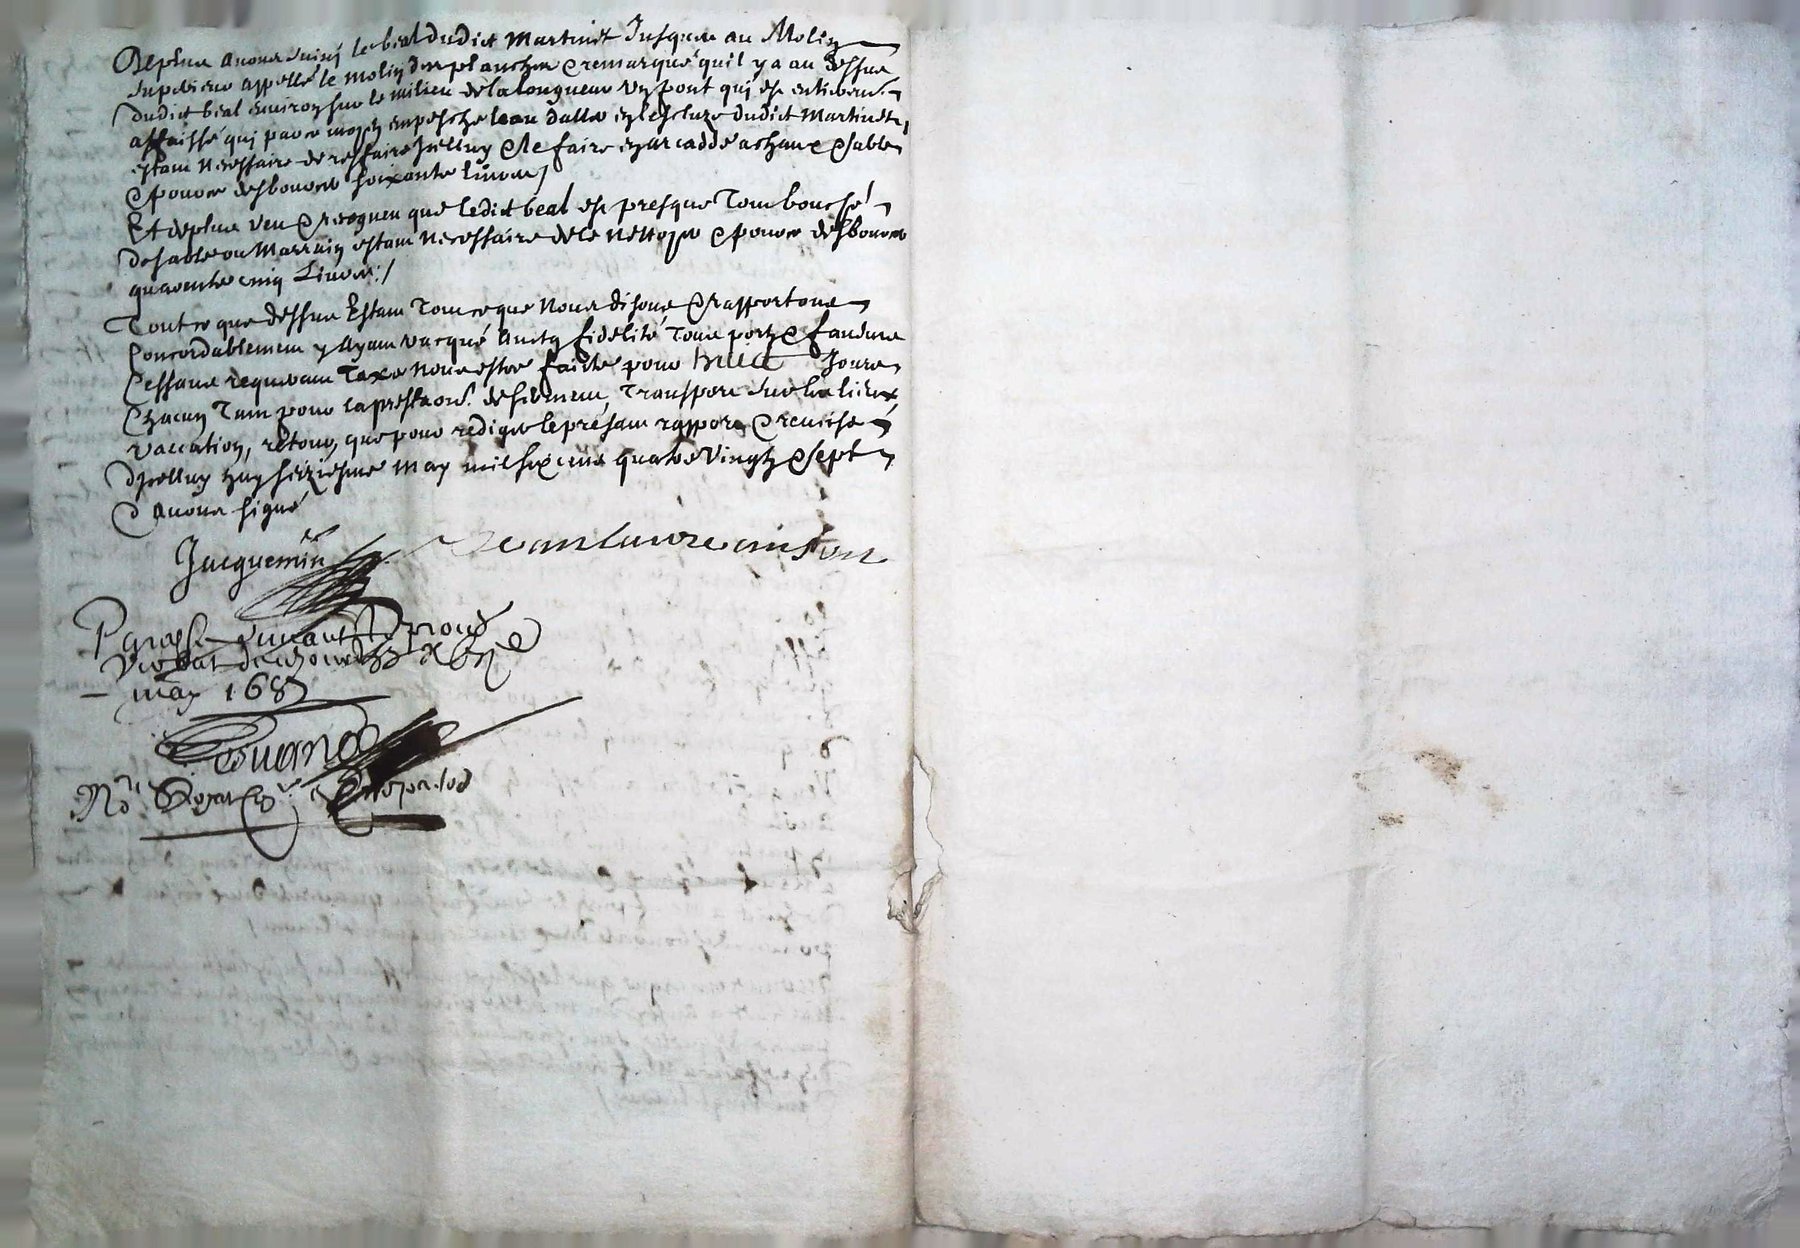 De plus avons suivy le beal dudict Martinet Jusques au Molin
superieur appellé le molin des planches & remarqué quil y a au dessus
dudict beal environ sur le milieu de la longueur un pont qui est entierem.t
affaissé qui par ce moyen empesche leau daller en lescluze dudict Martinet,
estant necessaire de resfaire Jcelluy & le faire en arcadde a chaux & sable
& pour ce desbourcer soixante Livres /
Et de plus veu & recogneu que ledict beal est presque Tout bouché
de sable ou Marrain estant necessaire de le nettoyer & pour ce desbourcer
quarente cinq Livres /
Tout ce que dessus Estant Tout ce que Nous disons & rapportons
Concordablement y Ayant vacqué Avecq fidelité Tous port & faveurs
Cessans requerant Taxe Nous estre faicte pour huict Jours
Chacun Tant pour la prestaon.t de serment, Transport sur les lieux,
vaccation, retour, que pour rediger le present rapport & remise
dJcelluy huy seiziesme may mil six cens quatre Vingtz & sept
& Avons signé
Jacquemin
Jean
Paraphé suivant
verbal de ce jour
may 1687
N.re